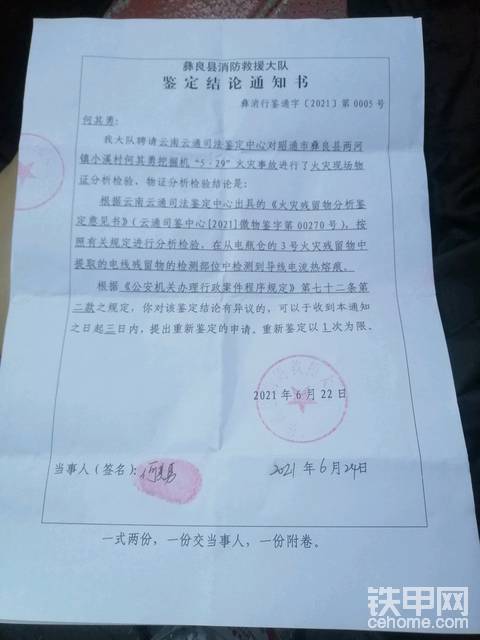 彝良县消防救援大队
鉴定结论通知书
彝消行鉴通字〔2021〕第0005号
何其勇：
我大队聘请云南云通司法鉴定中心对昭通市彝良县两河
镇小溪村何其勇挖掘机“5·29”火灾事故进行了火灾现场物
证分析检验，物证分析检验结论是：
根据云南云通司法鉴定中心出具的《火灾残留物分析鉴
定意见书》（云通司鉴中心[2021]微物鉴字第00270号），按
照有关规定进行分析检验，在从电瓶仓的3号火灾残留物中
提取的电线残留物的检测部位中检测到导线电流热熔痕。
根据《公安机关办理行政案件程序规定》第七十二条第
二款之规定，你对该鉴定结论有异议的，可以于收到本通知
之日起三日内，提出重新鉴定的申请。重新鉴定以1次为限。
2021年6月22日
当事人（签名）：何其勇 2021年6月24日
一式两份，一份交当事人，一份附卷。
铁甲网
cehome.com